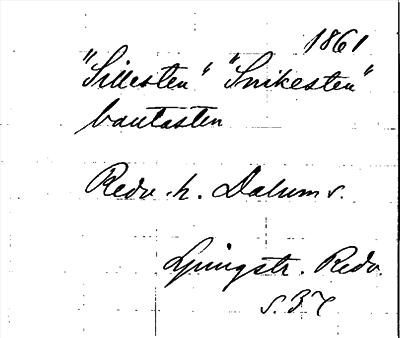 1861
"Sillesten" "Snikesten"
bautasten
Redv. h. Dalum s.
Ljungstr. Redv.
s. 37